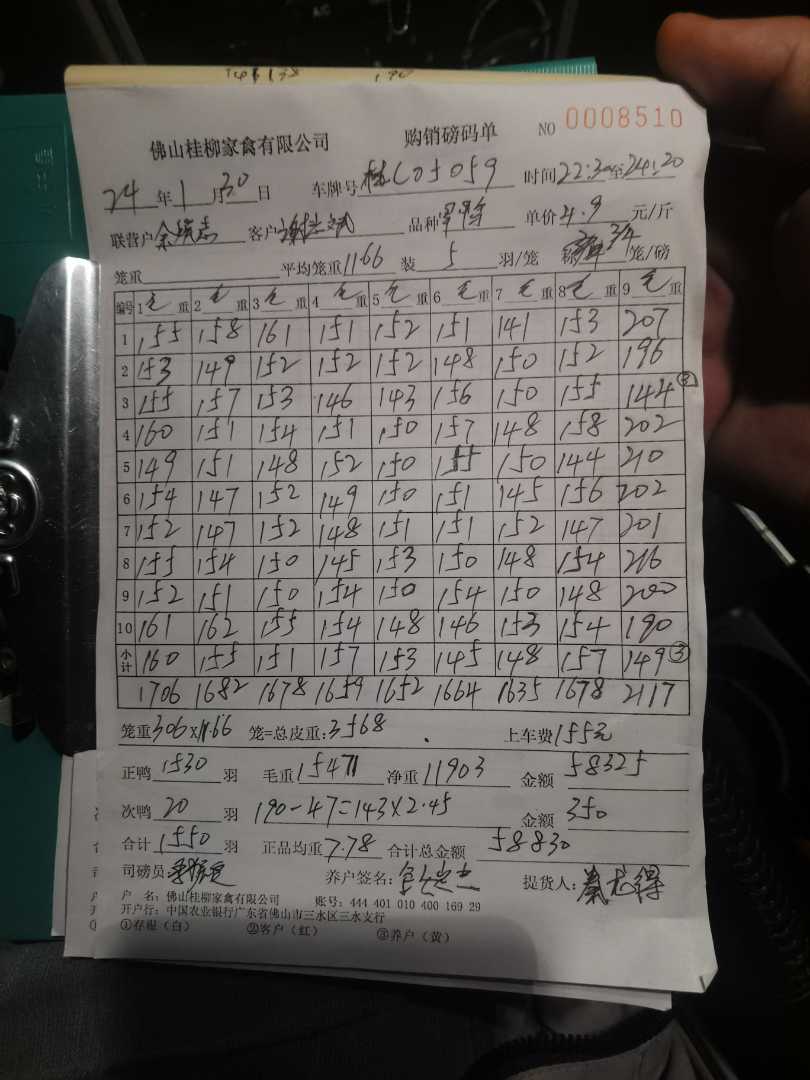 佛山桂柳家禽有限公司 购销磅码单 NO 0008510
24年1月30日 车牌号 桂C05059 时间22:30至24:20
联营户 客户 品种 单价4.9元/斤
笼重 平均笼重1166 装5羽/笼 3/4笼/磅
编号 1毛重 2毛重 3毛重 4毛重 5毛重 6毛重 7毛重 8毛重 9毛重
1 155 158 161 151 152 151 141 153 207
2 153 149 152 152 152 148 150 152 196
3 155 157 153 146 143 156 150 155 144②
4 160 151 154 151 150 157 148 158 202
5 149 151 148 152 150 155 150 144 210
6 154 147 152 149 150 151 145 156 202
7 152 147 152 148 151 151 152 147 201
8 155 154 150 145 153 150 148 154 216
9 152 151 150 154 150 154 150 148 200
10 161 162 155 154 148 146 153 154 190
小计 160 155 151 157 153 145 148 157 149③
1706 1682 1678 1659 1652 1664 1635 1678 2117
笼重306×11.66笼=总皮重:3568 上车费155元
正鸭1530羽 毛重15471 净重11903 金额58325
次鸭20羽 190-47=143×2.45 金额350
合计1550羽 正品均重7.78 合计总金额58830
司磅员 养户签名: 提货人:
户 名:佛山桂柳家禽有限公司 账号:444 401 010 400 169 29
开户行:中国农业银行广东省佛山市三水区三水支行
①存根(白) ②客户(红) ③养户(黄)